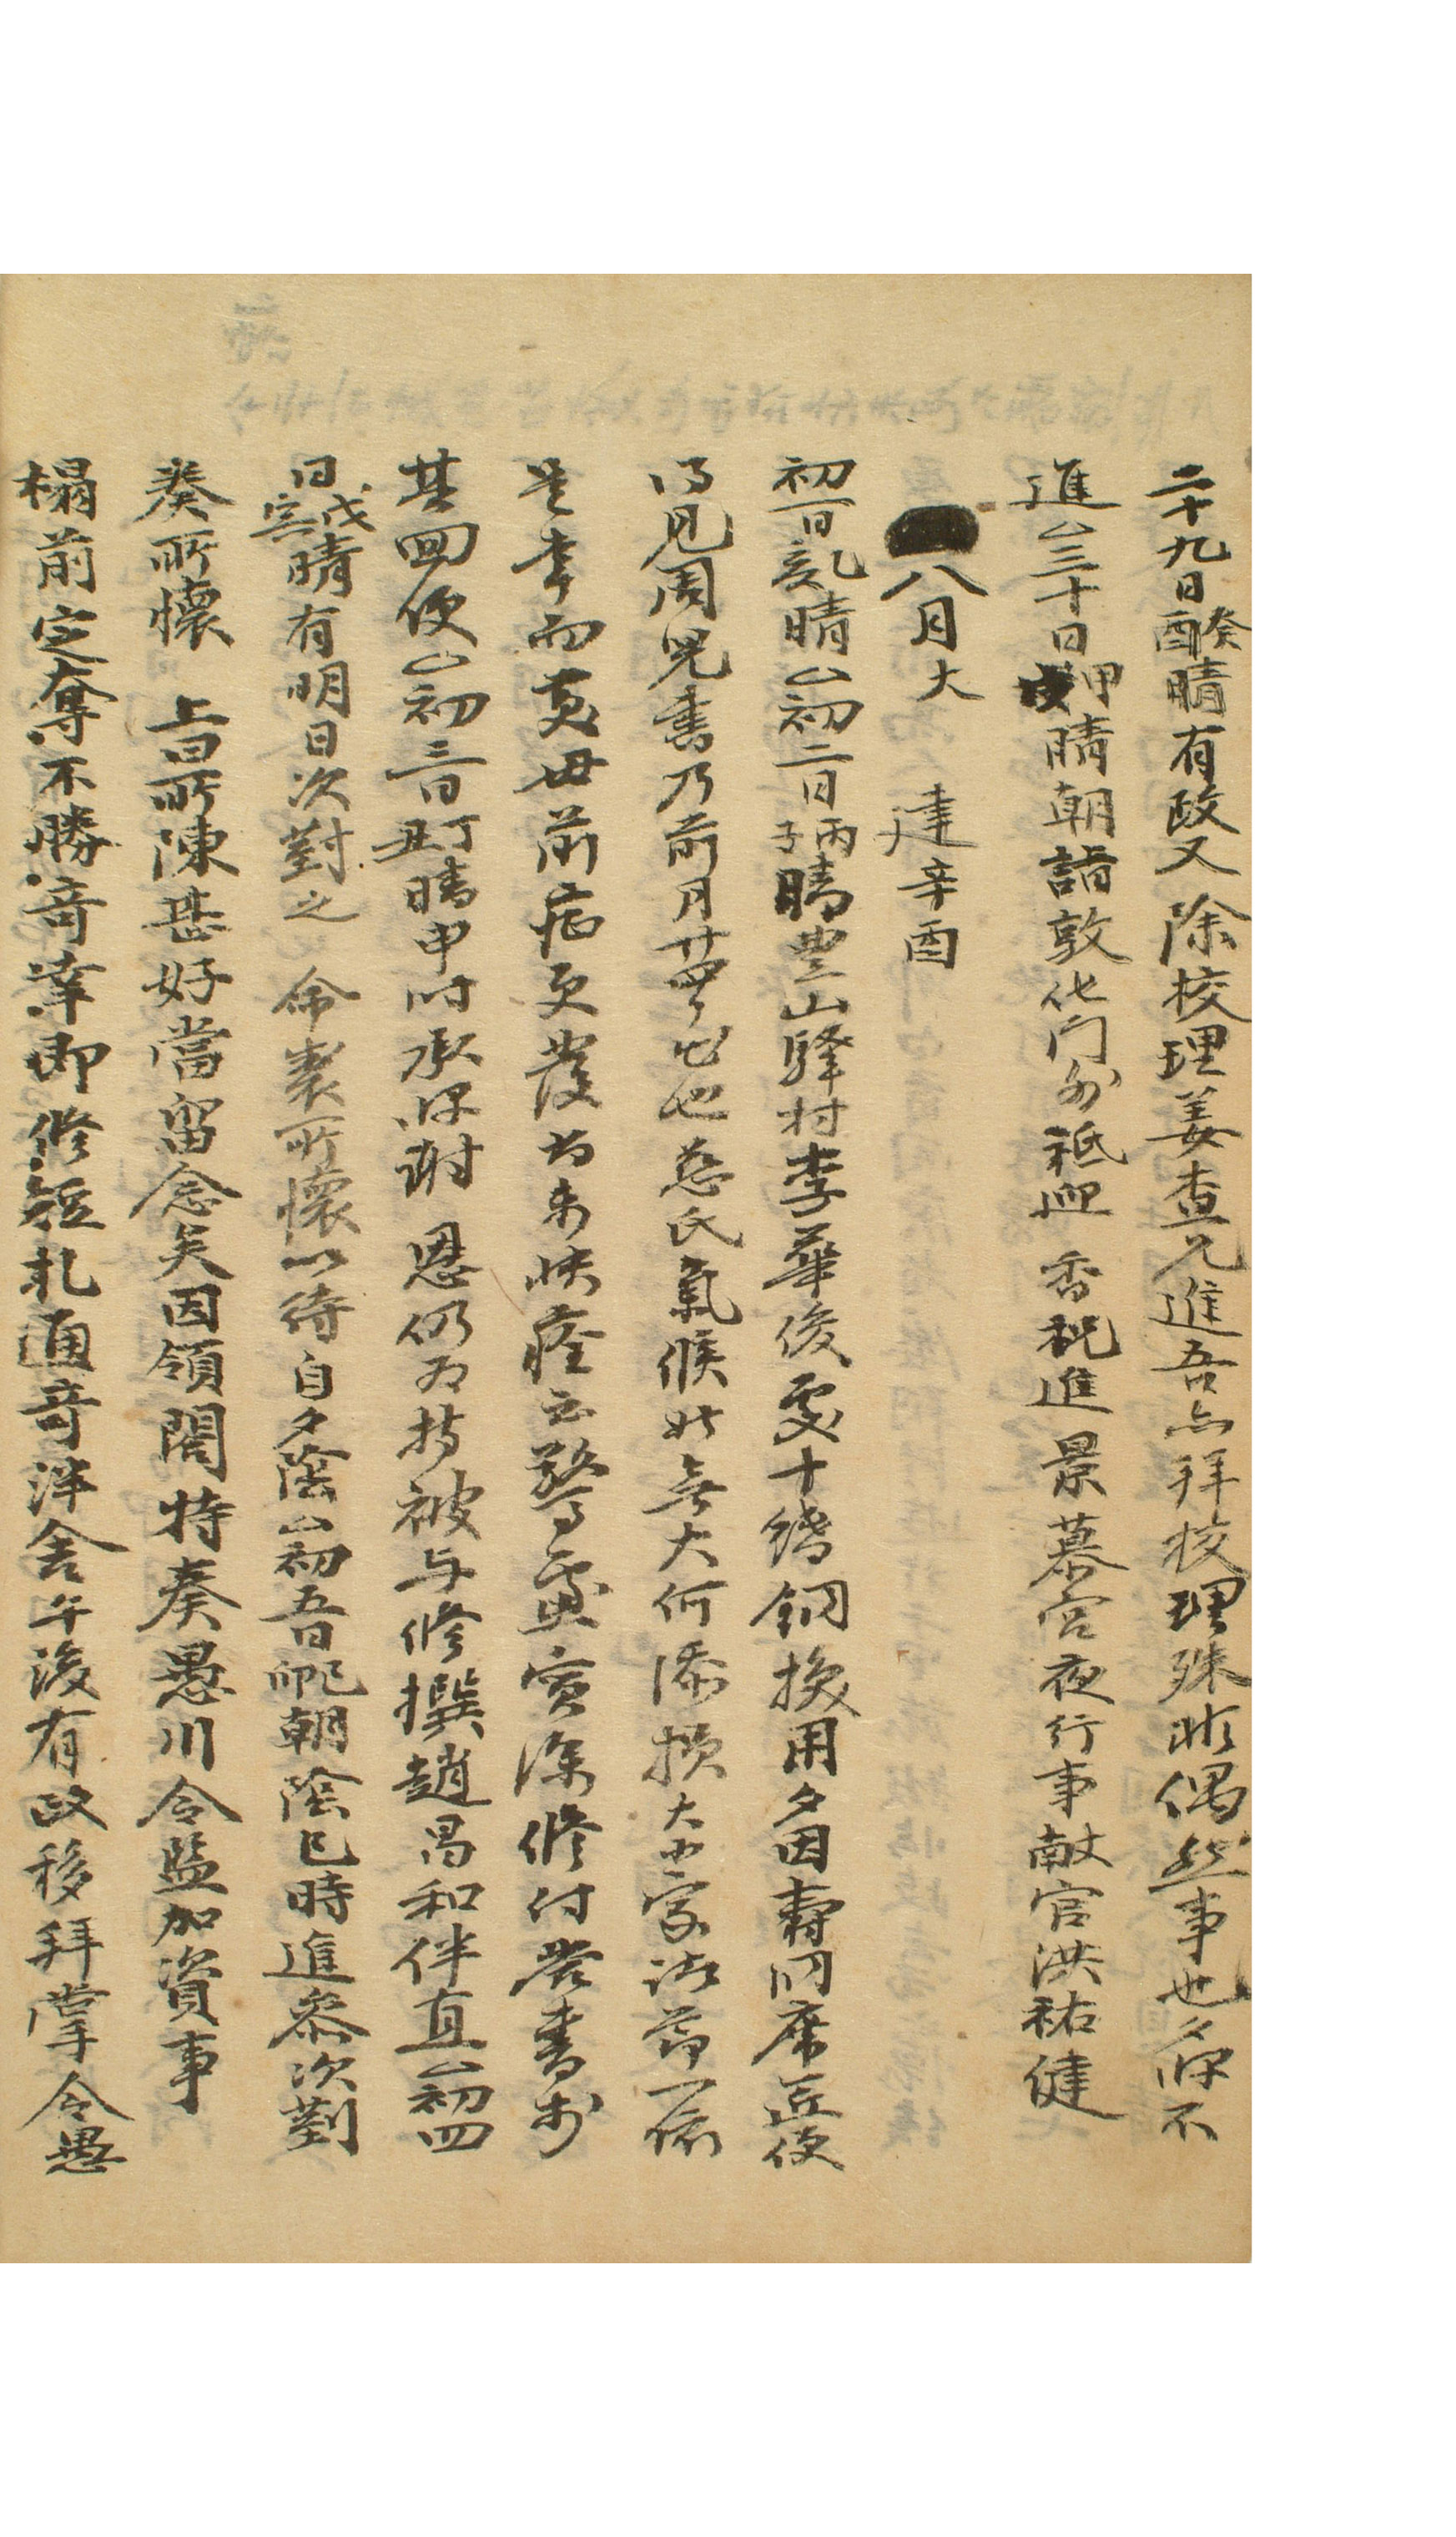 二十九日癸酉晴有政又除校理姜查兄進吾亦拜校理殊非偶然事也夕牌不
進△三十日甲戌晴朝詣敦化門外祗迎 香祝進 景慕宮夜行事献官洪祐健
八月大 建辛酉
初一日乙亥晴△初二日丙子晴豊山驛村李華俊處十緡銅換用夕因壽洞席匠便
得見周兒書乃前月廿也慈氏氣候姑無大何添損大小家諸節一依
是幸而莫毋前症更發尚未快痊云驚慮實深修付答書於
其回便△初三日丁丑晴申時承牌謝 恩仍爲持被与修撰趙昌和伴直△初四
日戊寅晴有明日次對之 命製所懷以待自夕陰△初五日己卯朝陰巳時進參次對
奏所懷 上曰所陳甚好當留念矣因領閤特奏愚川令監加資事
榻前定奪不勝奇幸即修短札通奇泮舍午後有政移拜掌令愚